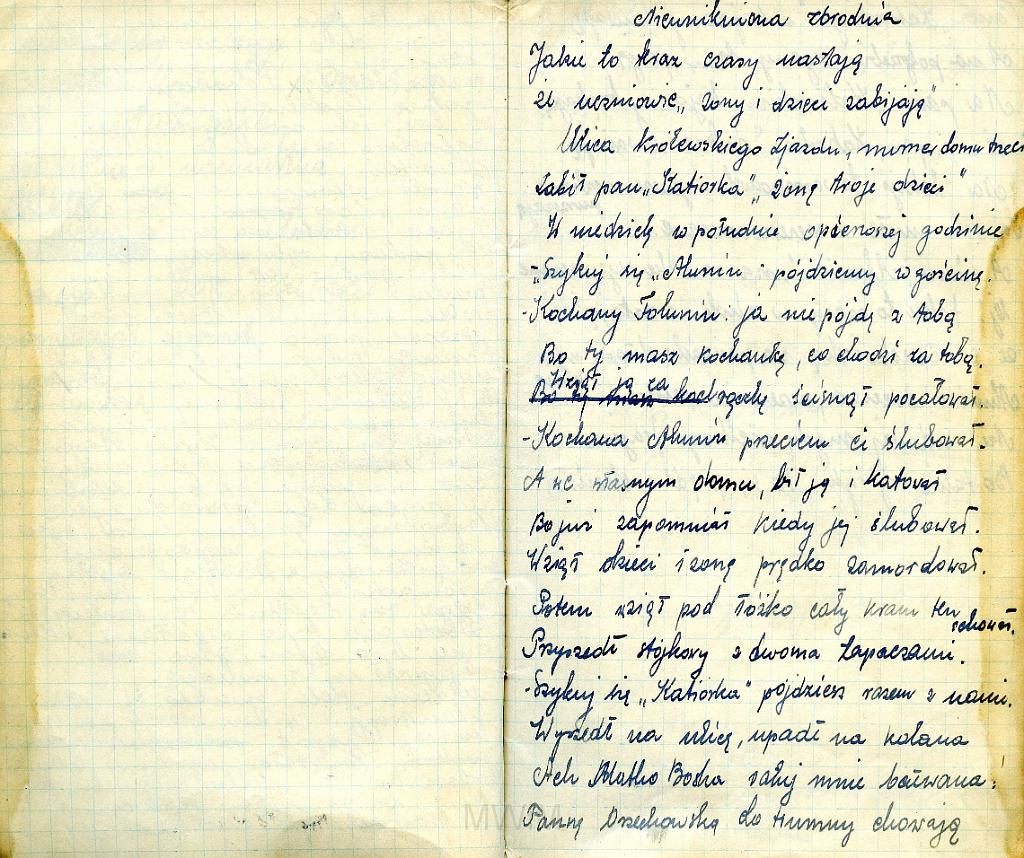 Nieunikniona zbrodnia
Jakie to teraz czasy nastają
że uczniowie „żony i dzieci zabijają"
Ulica Królewskiego Zjazdu, numer domu trzeci
Zabił pan „Katiorka" „żonę troje dzieci"
W niedzielę w południe opóenoszej godzinie
-„Szykuj się „Alumiu i pójdziemy w gościnę.
-Kochany Tolumiu: ja nie pójdę z tobą
Bo ty masz kochankę, co chodzi za tobą.
Wziął ją za
Bo ty masz koch rączkę ścisnął pocałował.
-Kochana Alumiu przeciem ci ślubował.
A we własnym domu, bił ją i katował
Bo już zapomniał kiedy jej ślubował.
Wziął dzieci i żonę prędko zamordował.
Potem wziął pod łóżko cały kram ten
schował.
Przyszedł stójkowy z dwoma łapaczami.
-Szykuj się „Katiorka" pójdziesz razem z nami.
Wyszedł na ulicę, upadł na kolana
Ach Matko Boska ratuj mnie bałwana:
Pannę Orzechowską do trumny chowają
MW